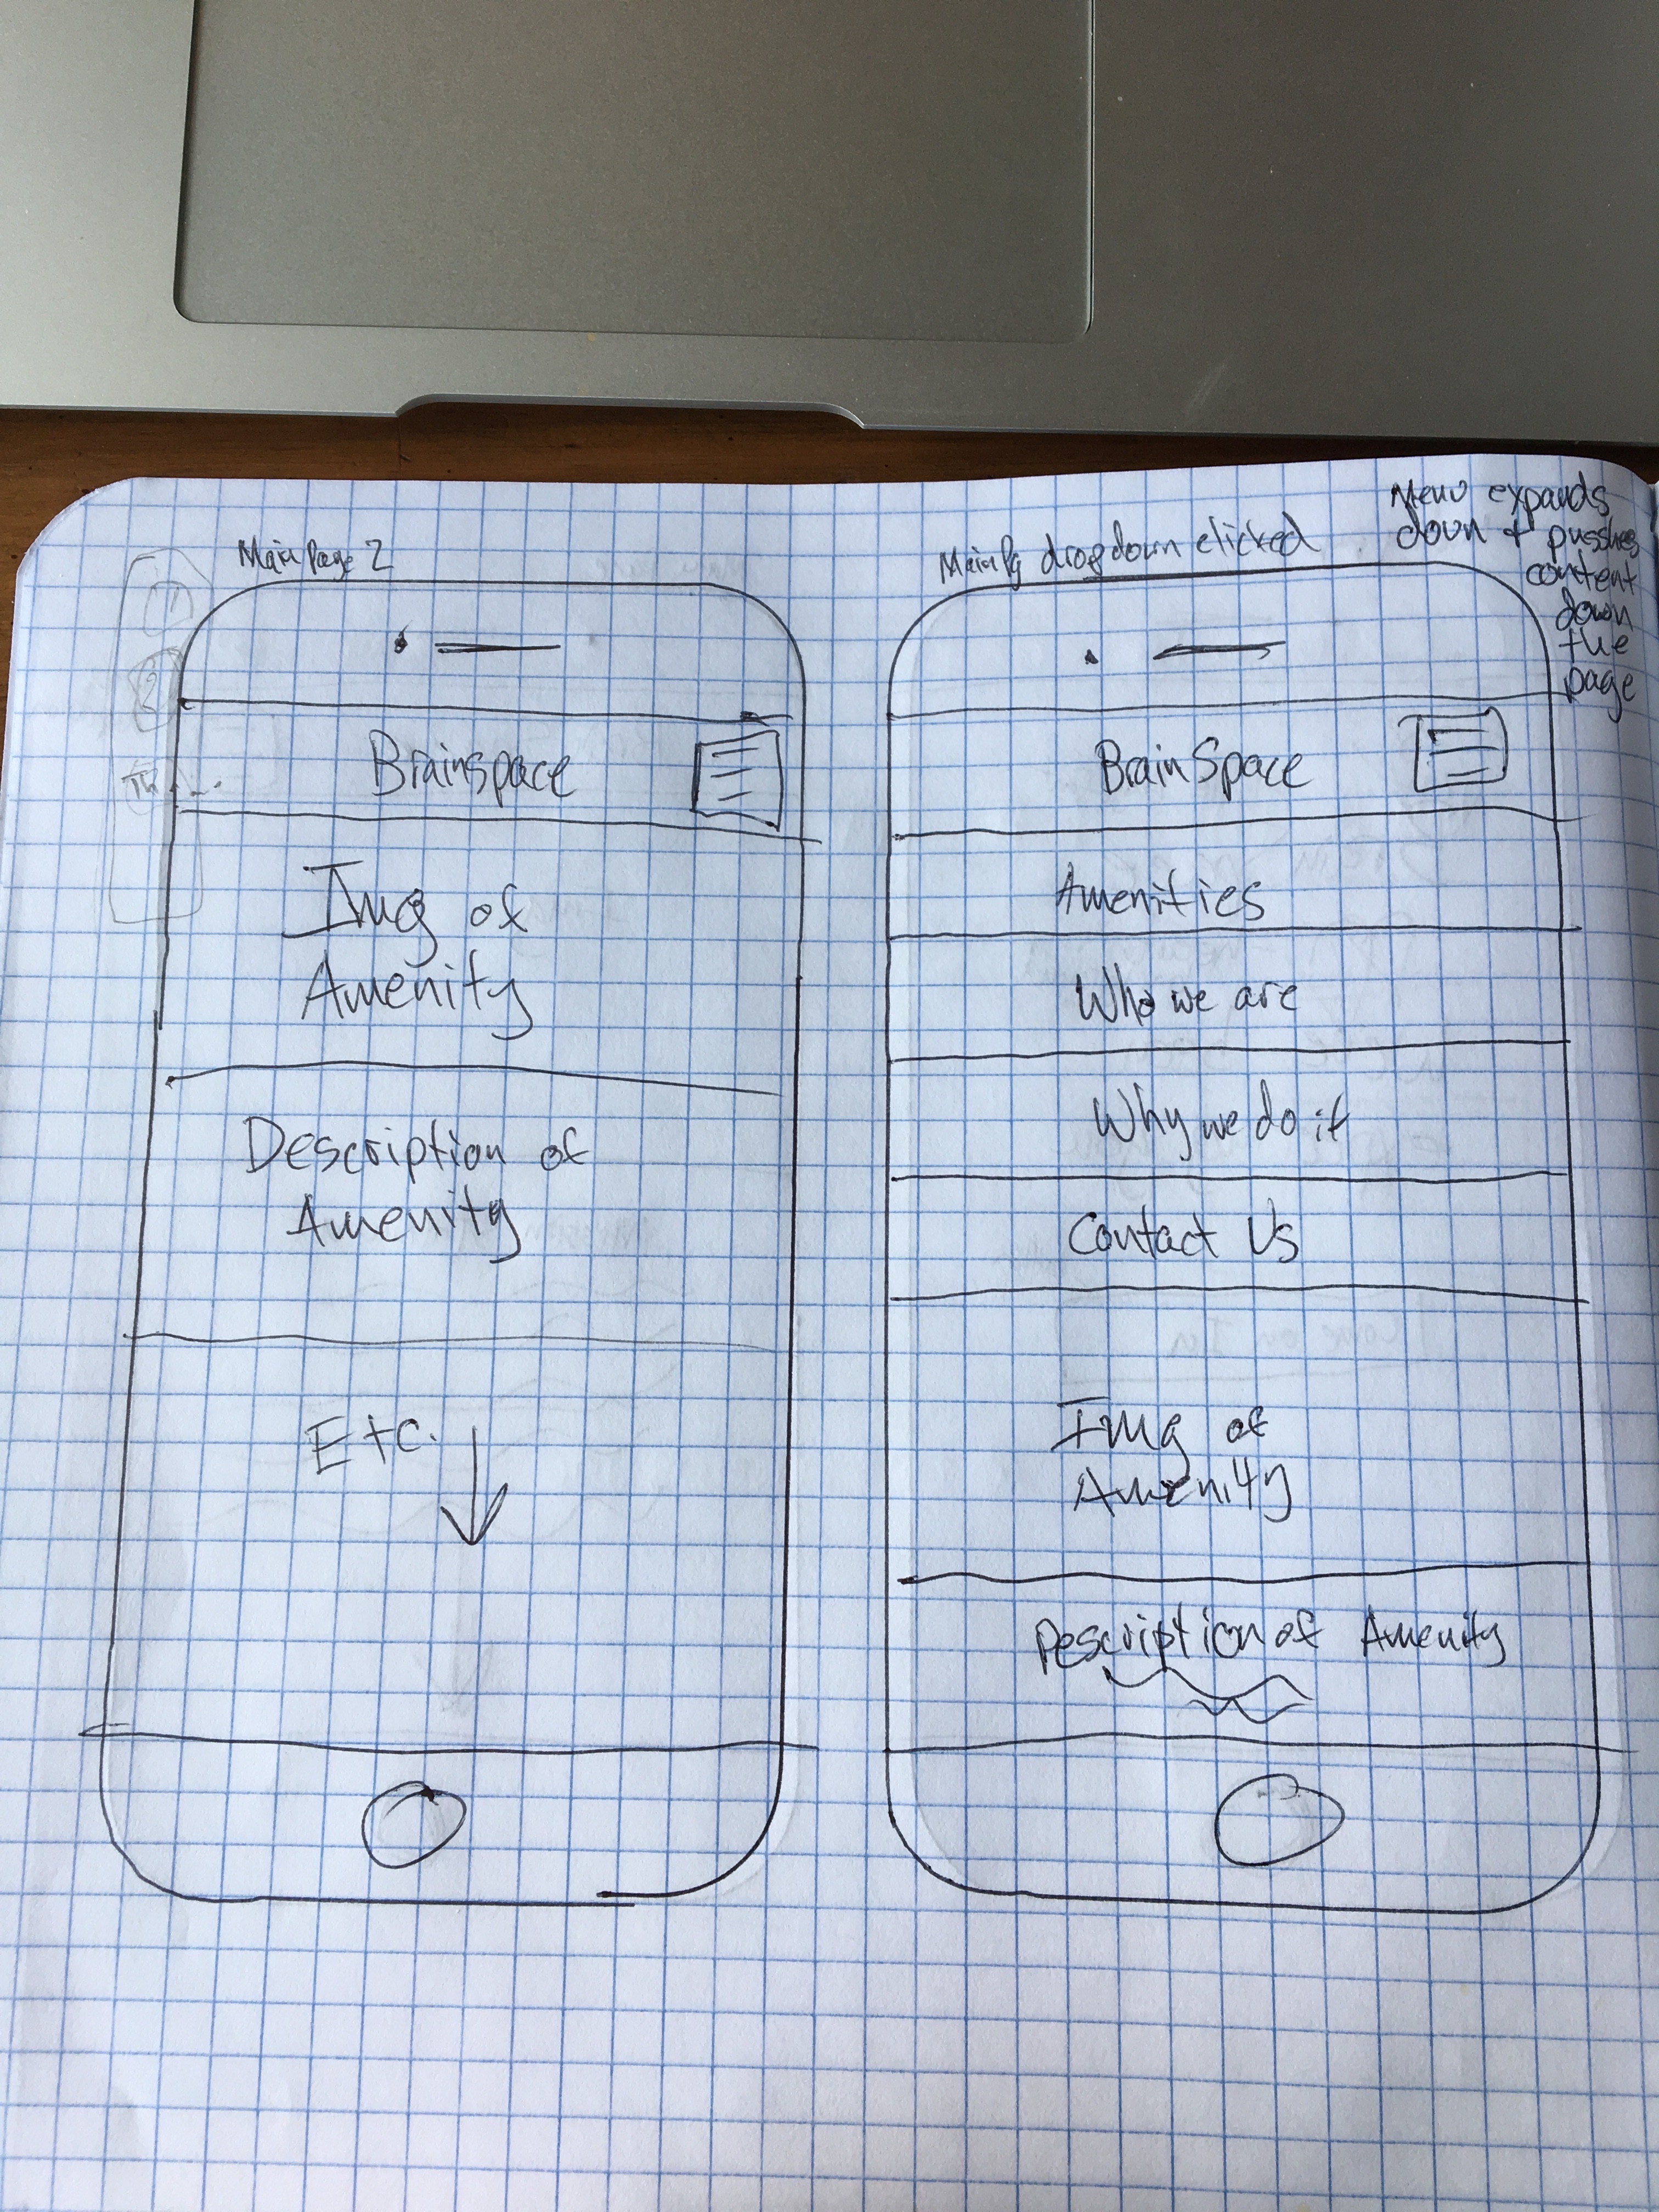 Main Page 2
Brainspace
Img of
Amenity
Description of
Amenity
Etc.
Main Pg dropdown clicked
Menu expands
down + pusshes
content
down
the
page
BrainSpace
Amenities
Who we are
Why we do it
Contact Us
Img of
Amenity
Description of Amenity